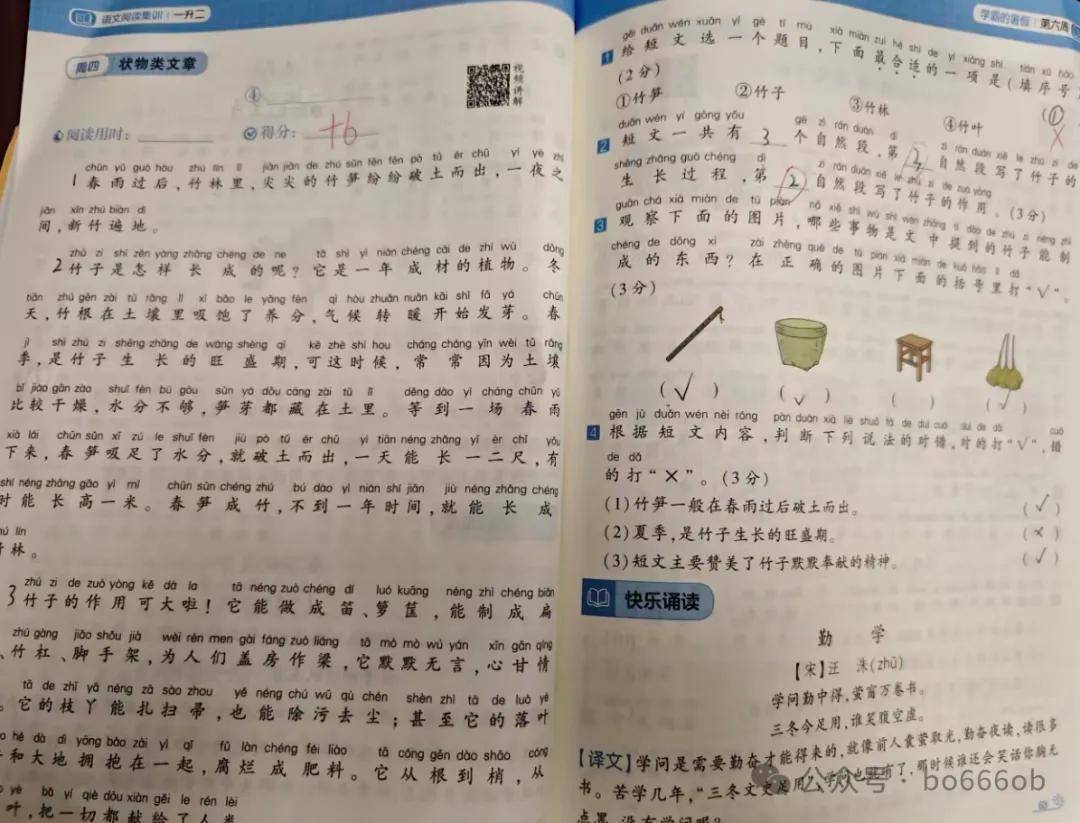 语文阅读集训 一升二
周四 状物类文章
视频讲解
④
阅读用时: 得分: +6
chūn yǔ guò hòu zhú lín lǐ jiān jiān de zhú sǔn fēn fēn pò tǔ ér chū yí yè zhī
1 春雨过后,竹林里,尖尖的竹笋纷纷破土而出,一夜之
jiān xīn zhú biàn dì
间,新竹遍地。
zhú zi shì zěn yàng zhǎng chéng de ne tā shì yì nián chéng cái de zhí wù dōng
2 竹子是怎样长成的呢?它是一年成材的植物。冬
tiān zhú gēn zài tǔ rǎng lǐ xī bǎo le yǎng fèn qì hòu zhuǎn nuǎn kāi shǐ fā yá chūn
天,竹根在土壤里吸饱了养分,气候转暖开始发芽。春
jì shì zhú zi shēng zhǎng de wàng shèng qī kě zhè shí hou cháng cháng yīn wèi tǔ rǎng
季,是竹子生长的旺盛期,可这时候,常常因为土壤
bǐ jiào gān zào shuǐ fèn bú gòu sǔn yá dōu cáng zài tǔ lǐ děng dào yì cháng chūn yǔ
比较干燥,水分不够,笋芽都藏在土里。等到一场春雨
xià lái chūn sǔn xī zú le shuǐ fèn jiù pò tǔ ér chū yì tiān néng zhǎng yī èr chǐ yǒu
下来,春笋吸足了水分,就破土而出,一天能长一二尺,有
shí néng zhǎng gāo yì mǐ chūn sǔn chéng zhú bú dào yì nián shí jiān jiù néng zhǎng chéng
时能长高一米。春笋成竹,不到一年时间,就能长成
zhú lín
竹林。
zhú zi de zuò yòng kě dà la tā néng zuò chéng dí luó kuāng néng zhì chéng biǎn
3 竹子的作用可大啦!它能做成笛、箩筐,能制成扁
zhú gàng jiǎo shǒu jià wèi rén men gài fáng zuò liáng tā mò mò wú yán xīn gān qíng
、竹杠、脚手架,为人们盖房作梁,它默默无言,心甘情
tā de zhī yā néng zā sào zhou yě néng chú wū qù chén shèn zhì tā de luò yè
。它的枝丫能扎扫帚,也能除污去尘;甚至它的落叶
hé dà dì yōng bào zài yì qǐ fǔ làn chéng féi liào tā cóng gēn dào shāo cóng
和大地拥抱在一起,腐烂成肥料。它从根到梢,从
yè bǎ yí qiè dōu xiàn gěi le rén lèi
叶,把一切都献给了人类
学霸的暑假 第六周
gěi duǎn wén xuǎn yí gè tí mù xià miàn zuì hé shì de yí xiàng shì tián xù hào
1 给短文选一个题目,下面最合适的一项是(填序号)
(2分) (①
①竹笋 ②竹子 ③竹林 ④竹叶 ×
duǎn wén yí gòng yǒu gè zì rán duàn dì zì rán duàn xiě le zhú zi de
2 短文一共有 3 个自然段,第 自然段写了竹子的
shēng zhǎng guò chéng dì zì rán duàn xiě le zhú zi de zuò yòng
生长过程,第 2 自然段写了竹子的作用。(3分)
guān chá xià miàn de tú piàn nǎ xiē shì wù shì wén zhōng tí dào de zhú zi néng zhì
3 观察下面的图片,哪些事物是文中提到的竹子能制
chéng de dōng xi zài zhèng què de tú piàn xià miàn de kuò hào lǐ dǎ
成的东西?在正确的图片下面的括号里打“√”。
(3分)
(√) (√) ( ) (√)
gēn jù duǎn wén nèi róng pàn duàn xià liè shuō fǎ de duì cuò duì de dǎ cuò
4 根据短文内容,判断下列说法的对错,对的打“√”,错
de dǎ
的打“×”。(3分)
(1)竹笋一般在春雨过后破土而出。 (√)
(2)夏季,是竹子生长的旺盛期。 (×)
(3)短文主要赞美了竹子默默奉献的精神。 (√)
快乐诵读
勤 学
【宋】汪 洙(zhū)
学问勤中得,萤窗万卷书。
三冬今足用,谁笑腹空虚。
【译文】学问是需要勤奋才能得来的,就像前人囊萤取光,勤奋夜读,读很多
书。苦学几年,“三冬文史足用”,学问也就有了,那时候谁还会笑话你胸无
点墨,没有学问呢?
公众号 · bo666ob